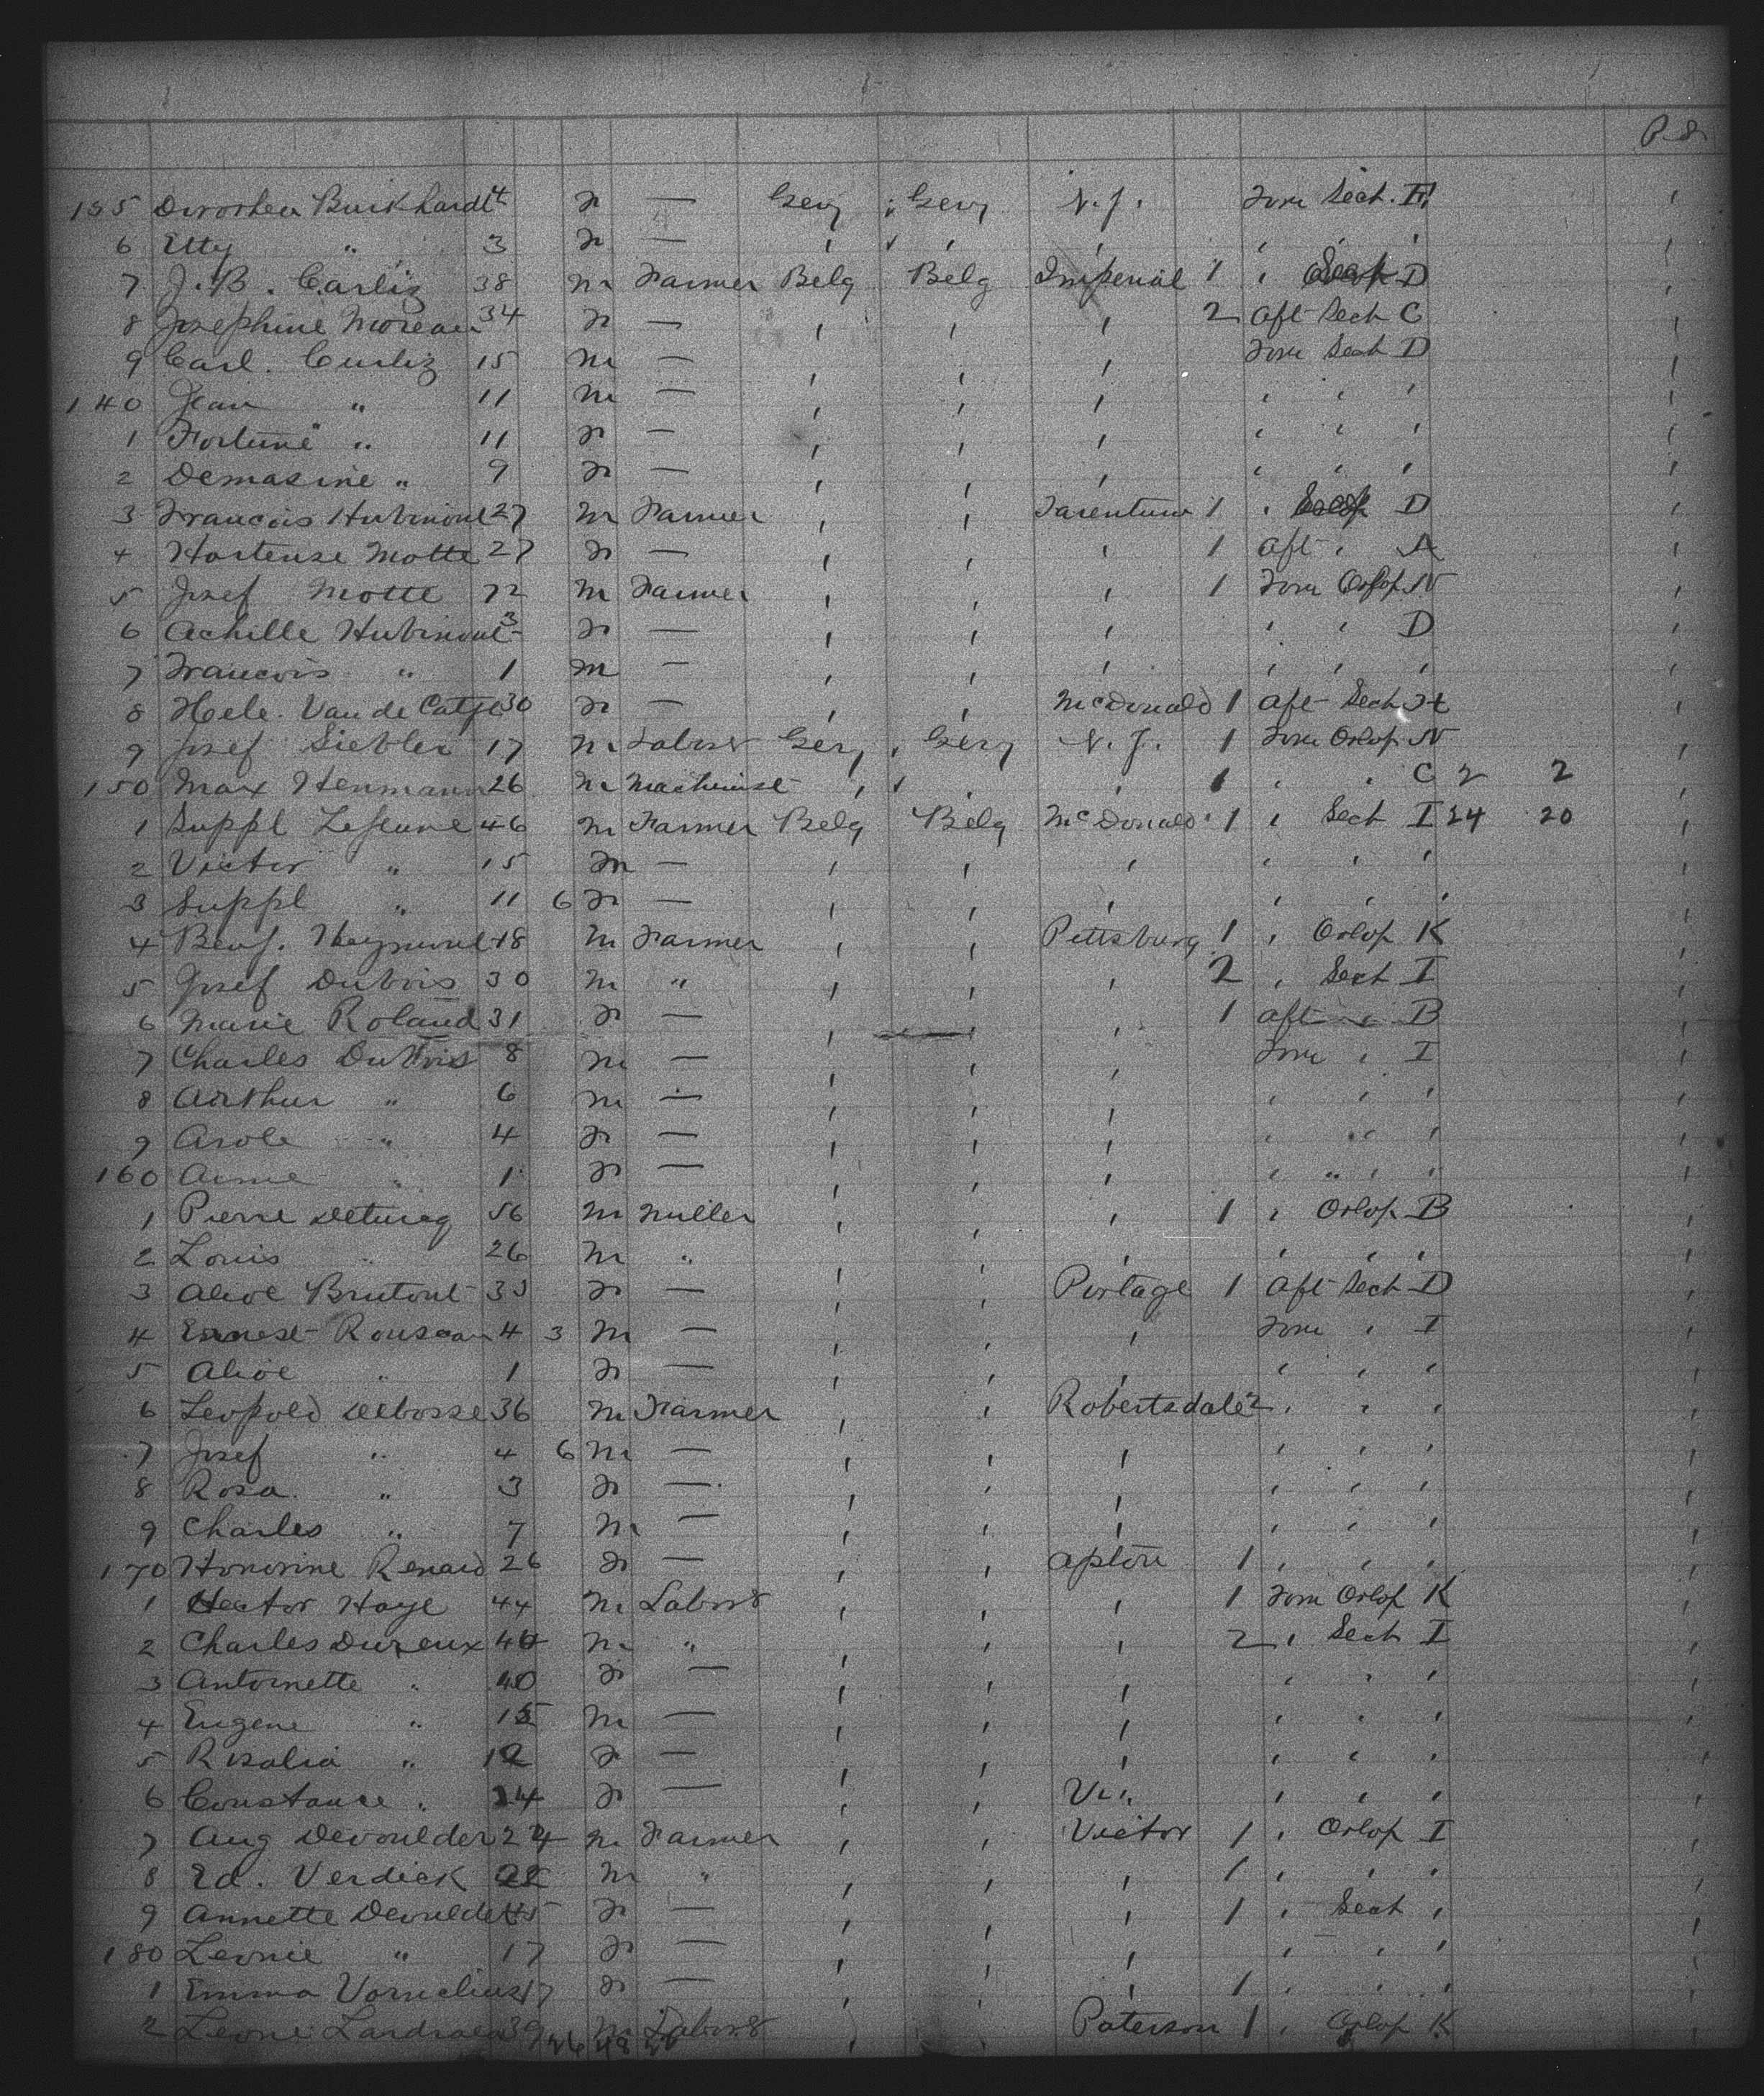 P. 8
135 Dorothea Burkhardt 4 F — Gery Gery N.J. Forw Sect. H
6 Etty " 3 F — ' ' ' ' ' '
7 J. B. Carliz 38 M Farmer Belg Belg Imperial 1 ' D
8 Josephine Moreau 34 F — ' ' ' 2 Aft Sect C
9 Carl. Curliz 15 M — ' ' ' Forw Sect D
140 Jean " 11 M — ' ' ' ' ' '
1 Fortuné " 11 F — ' ' ' ' ' '
2 Demasine " 9 F — ' ' ' ' ' '
3 Francois Hubinont 27 M Farmer ' ' Tarentum 1 ' D
4 Hortense Motte 27 F — ' ' ' 1 Aft ' A
5 Josef Motte 72 M Farmer ' ' ' 1 Forw Orlop N
6 Achille Hubinont 3 F — ' ' ' ' ' D
7 Francois " 1 M — ' ' ' ' ' '
8 Hele. Van de Catje 30 F — ' ' McDonald 1 Aft Sect H
9 Josef Siebler 17 M Labour Gery Gery N.J. 1 Forw Orlop N
150 Max Henmann 26 M Machinist ' ' ' 1 ' ' C 2 2
1 Suppl Lefeune 46 M Farmer Belg Belg McDonald 1 ' Sect I 24 20
2 Victor " 15 M — ' ' ' ' ' '
3 Suppl " 11 6 F — ' ' ' ' ' '
4 Benj. Heyninl 48 M Farmer ' ' Pittsburg 1 ' Orlop K
5 Josef Dubois 30 M " ' ' ' 2 ' Sect I
6 Marie Roland 31 F — ' ' ' 1 Aft ' B
7 Charles Dubois 8 M — ' ' ' Forw ' I
8 Arthur " 6 M — ' ' ' ' ' '
9 Arole " 4 F — ' ' ' ' " '
160 Aime " 1 F — ' ' ' ' " ' '
1 Pierre Deturcq 56 M Miller ' ' ' 1 ' Orlop B
2 Louis " 26 M " ' ' ' ' ' '
3 Alice Brutout 33 F — ' ' Portage 1 Aft Sect D
4 Ernest Rouseau 4 3 M — ' ' ' Forw ' I
5 Alice " 1 F — ' ' ' ' ' '
6 Leopold Delbosse 36 M Farmer ' ' Robertsdale 2 ' ' '
7 Josef " 4 6 M — ' ' ' ' ' '
8 Rosa " 3 F — ' ' ' ' ' '
9 Charles " 7 M — ' ' ' ' ' '
170 Honorine Renard 26 F — ' ' Apton 1 ' ' '
1 Hector Haye 44 M Labour ' ' ' 1 Forw Orlop K
2 Charles Dureux 44 M " ' ' ' 2 ' Sect I
3 Antoinette " 40 F — ' ' ' ' ' '
4 Eugene " 15 M — ' ' ' ' ' '
5 Rosalia " 12 F — ' ' ' ' ' '
6 Constance " 14 F — ' ' ' ' '
7 Aug Devoulder 24 M Farmer ' ' Victor 1 ' Orlop I
8 Ed. Verdick M " ' ' ' 1 ' ' '
9 Annette Devoulder 45 F — ' ' ' 1 ' Sect '
180 Leonie " 17 F — ' ' ' ' ' '
1 Emma Vornelius 17 F — ' ' ' 1 ' ' '
2 Leone 39 M Labour ' ' Paterson 1 ' Orlop K